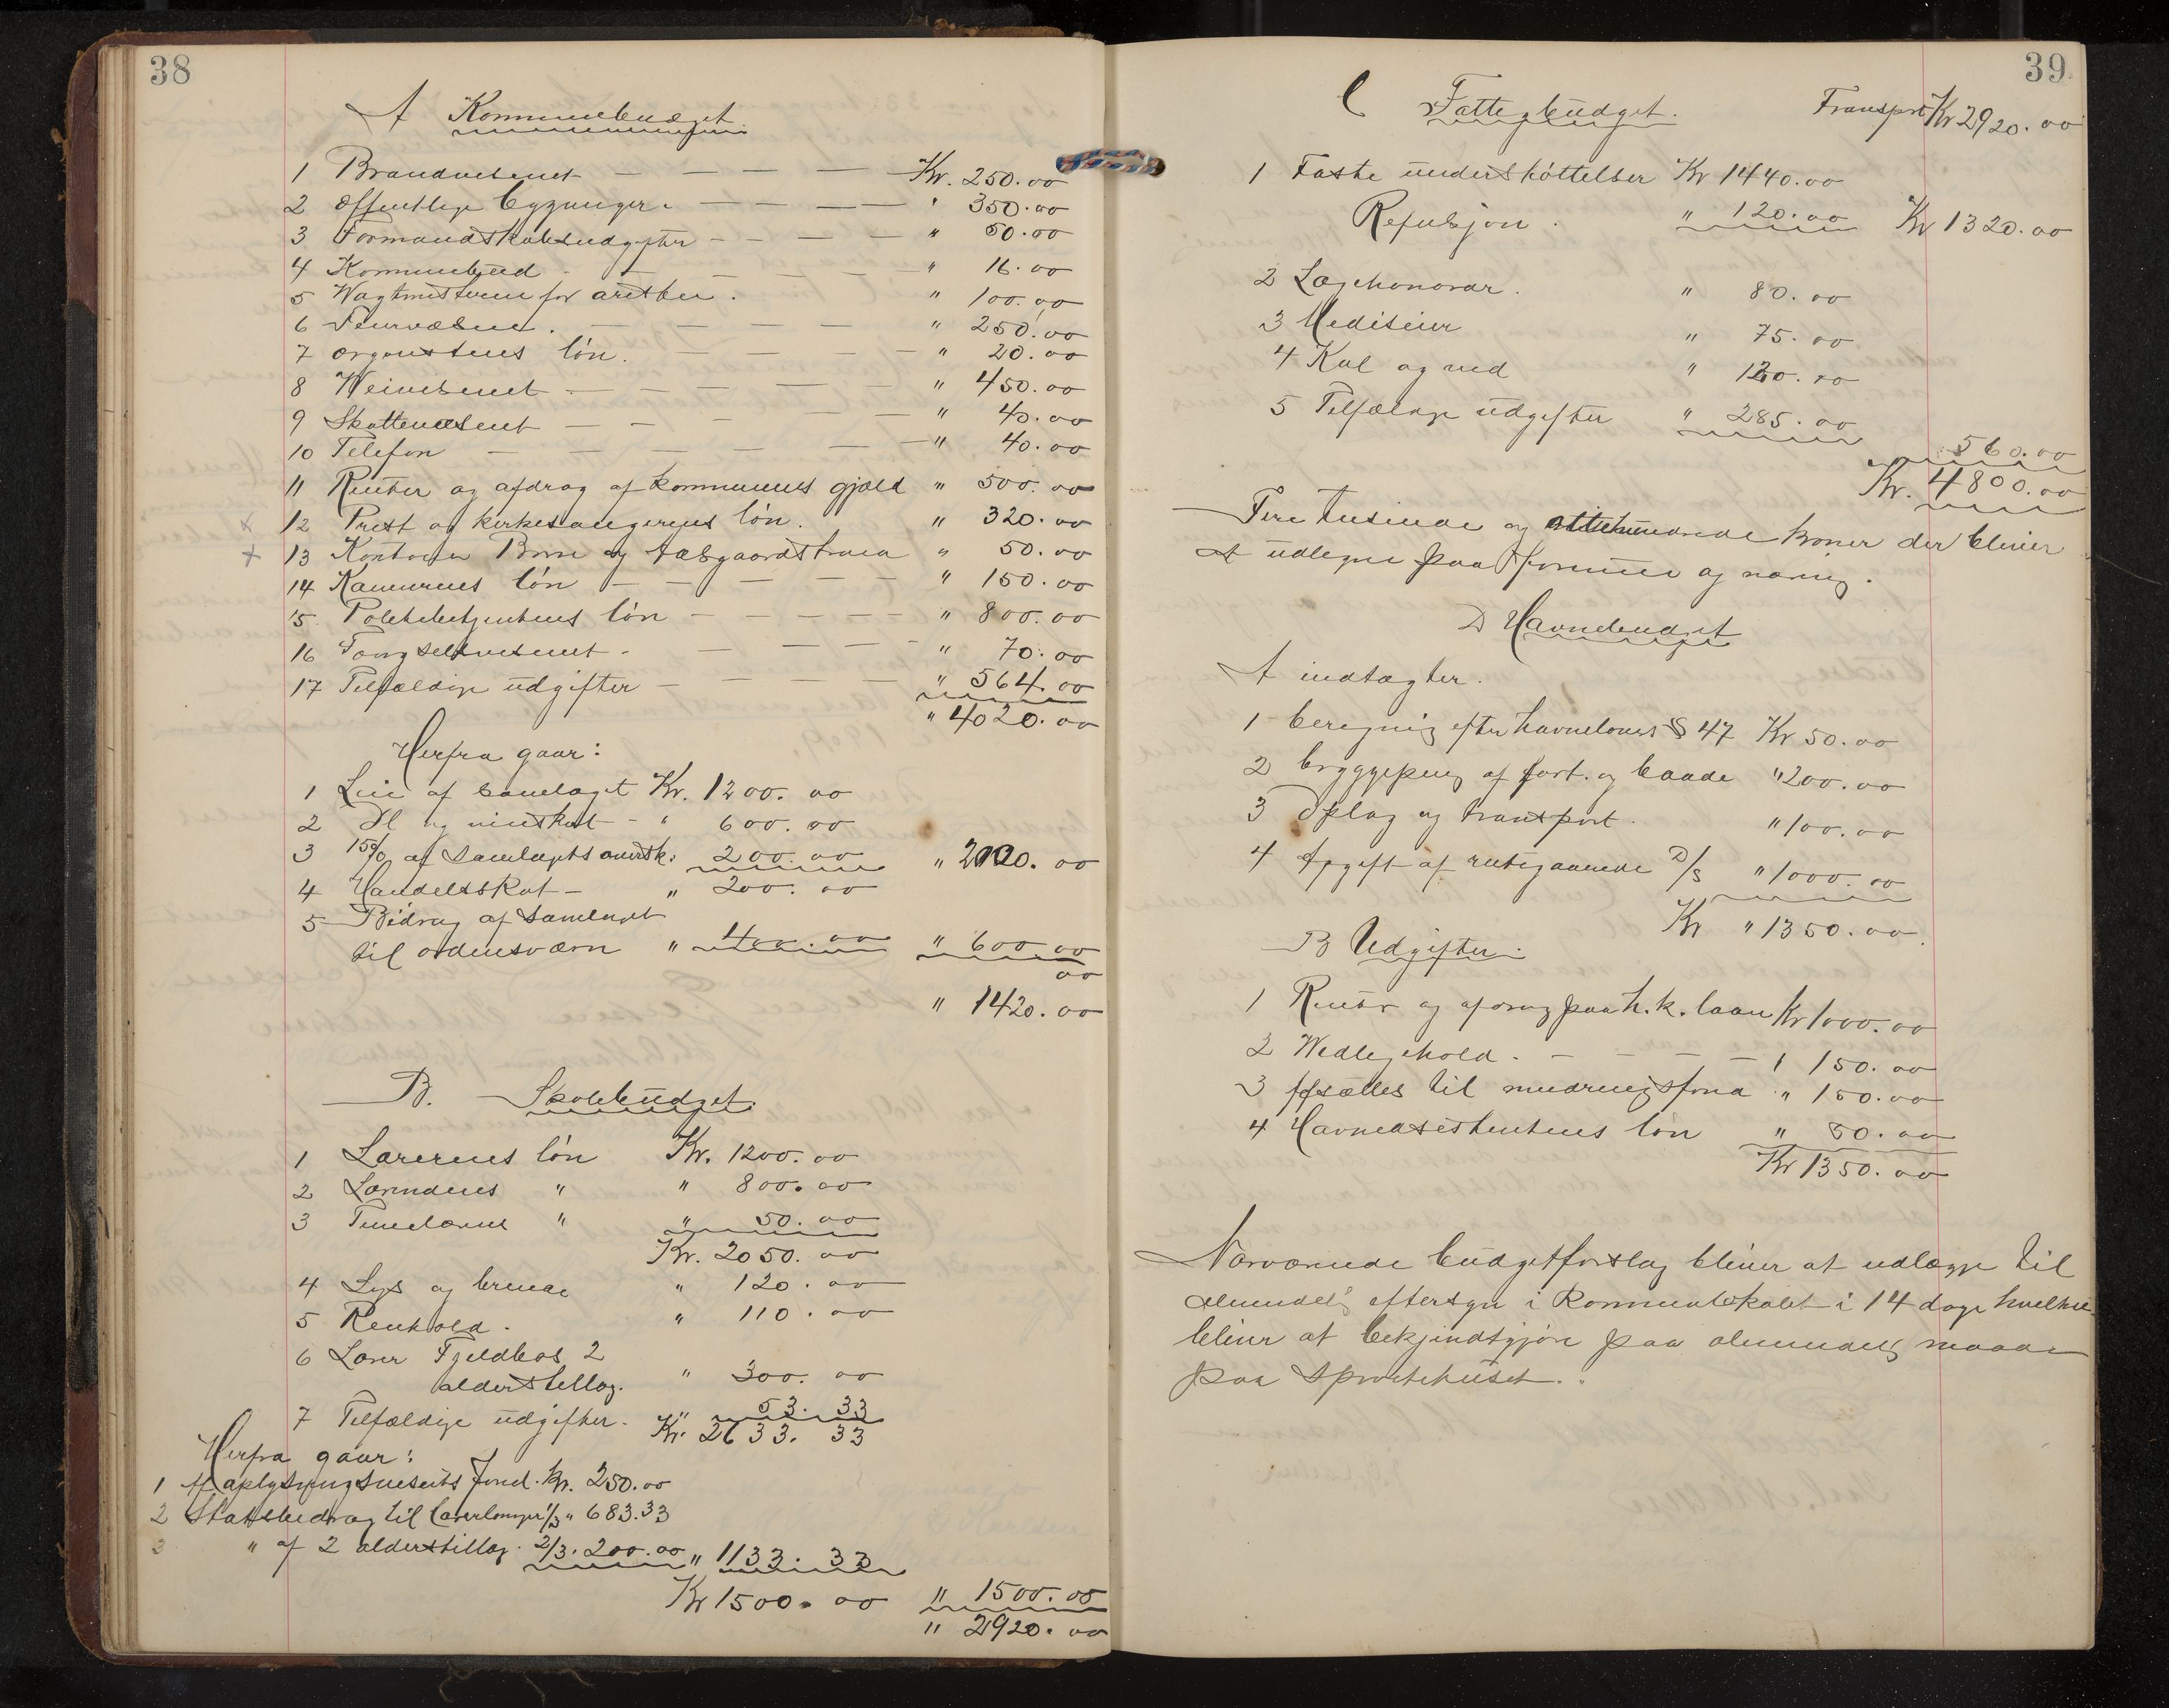 38
A Kommunebudget.
1 Brandvesenet — — — — Kr. 250.00
2 Offentlige bygninger. — — — — " 350.00
3 Formandskabsudgifter — — — — " 50.00
4 Kommunebud — — — — " 16.00
5 Vagtmesteren for aresten. " 100.00
6 — — — — " 250.00
7 Organistens løn. — — — — " 20.00
8 Weivesenet — — — — " 450.00
9 Skattevæsenet — — — — " 40.00
10 Telefon — — — — " 40.00
11 Renter og afdrag af kommunens gjæld " 500.00
12 Prest og kirkesangerens løn. " 320.00
13 Kontoret Borre og " 50.00
14 Kæmnerens løn — — — — " 150.00
15 Politibetjentens løn — — — — " 800.00
16 Fængselsvesenet. — — — " 70.00
17 Tilfældige udgifter — — — — " 564.00
" 4020.00
Herfra gaar:
1 Leie af samlaget Kr. 1200.00
2 Øl og vinskat - " 600.00
3 15% af Samlagets oversk: 200.00 " 2000.00
4 Handelsskat — " 200.00
5 Bidrag af Samlaget
til ordensværn " 400.00 " 600.00
00
" 1420.00
B. Skolebudget.
1 Lærerens løn Kr. 1200.00
2 Lærindens " " 800.00
3 Timelærens " " 50.00
Kr. 2050.00
4 Lys og brende " 120.00
5 Renhold. " 110.00
6 Lærer Fjeldbos 2
alderstillæg. " 300.00
7 Tilfældige udgifter. " 53.33
Kr. 2633.33
Herfra gaar:
1 Af oplysningsvesenets fond. Kr. 250.00
2 Statsbidrag til lærerlønninger 1/3 " 683.33
3 " af 2 alderstillæg. 2/3. 200.00 " 1133.33
Kr 1500.00 " 1500.00
" 2920.00
39
C Fattigbudget. Transport Kr 2920.00
1 Faste understøttelser Kr 1440.00
Refusjon. " 120.00 Kr 1320.00
2 Lægehonorar. " 80.00
3 Medisiner " 75.00
4 Kul og ved " 120.00
5 Tilfældige udgifter " 285.00
560.00
Kr. 4800.00
Fire tusinde og ottehundrede kroner der bliver
at udlegne paa formue og næring.
D Havnebudget
A indtægter.
1 beregning efter havnelovens § 47 Kr 50.00
2 bryggepeng af fart. og baade " 200.00
3 Oplag og transport. " 100.00
4 Afgift af rutegaaende D/S " 1000.00
Kr " 1350.00
B Udgifter.
1 Renter og afdrag paa h.k. laan Kr 1000.00
2 Wedligehold. — — — — " 150.00
3 Afsættes til mudringsfond " 150.00
4 Havneassistentens løn " 50.00
Kr 1350.00
Nærværende budgetforslag bliver at udlægge til
almindelig eftersyn i Kommunelokalet i 14 dage hvilket
bliver at bekjendtgjøre paa almindelig maade
paa Sprøitehuset.